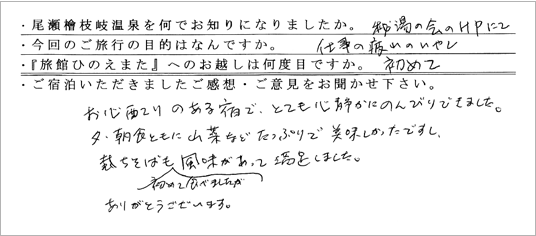 ・尾瀬檜枝岐温泉を何でお知りになりましたか。 秘湯の会のHPにて
・今回のご旅行の目的はなんですか。 仕事の疲れのいやし
・『旅館ひのえまた』へのお越しは何度目ですか。 初めて
・ご宿泊いただきましたご感想・ご意見をお聞かせ下さい。
お心配りのある宿で、とても心静かにのんびりできました。
夕・朝食ともに山菜などたっぷりで美味しかったですし、
裁ちそばも風味があって満足しました。
初めて食べましたが
ありがとうございます。